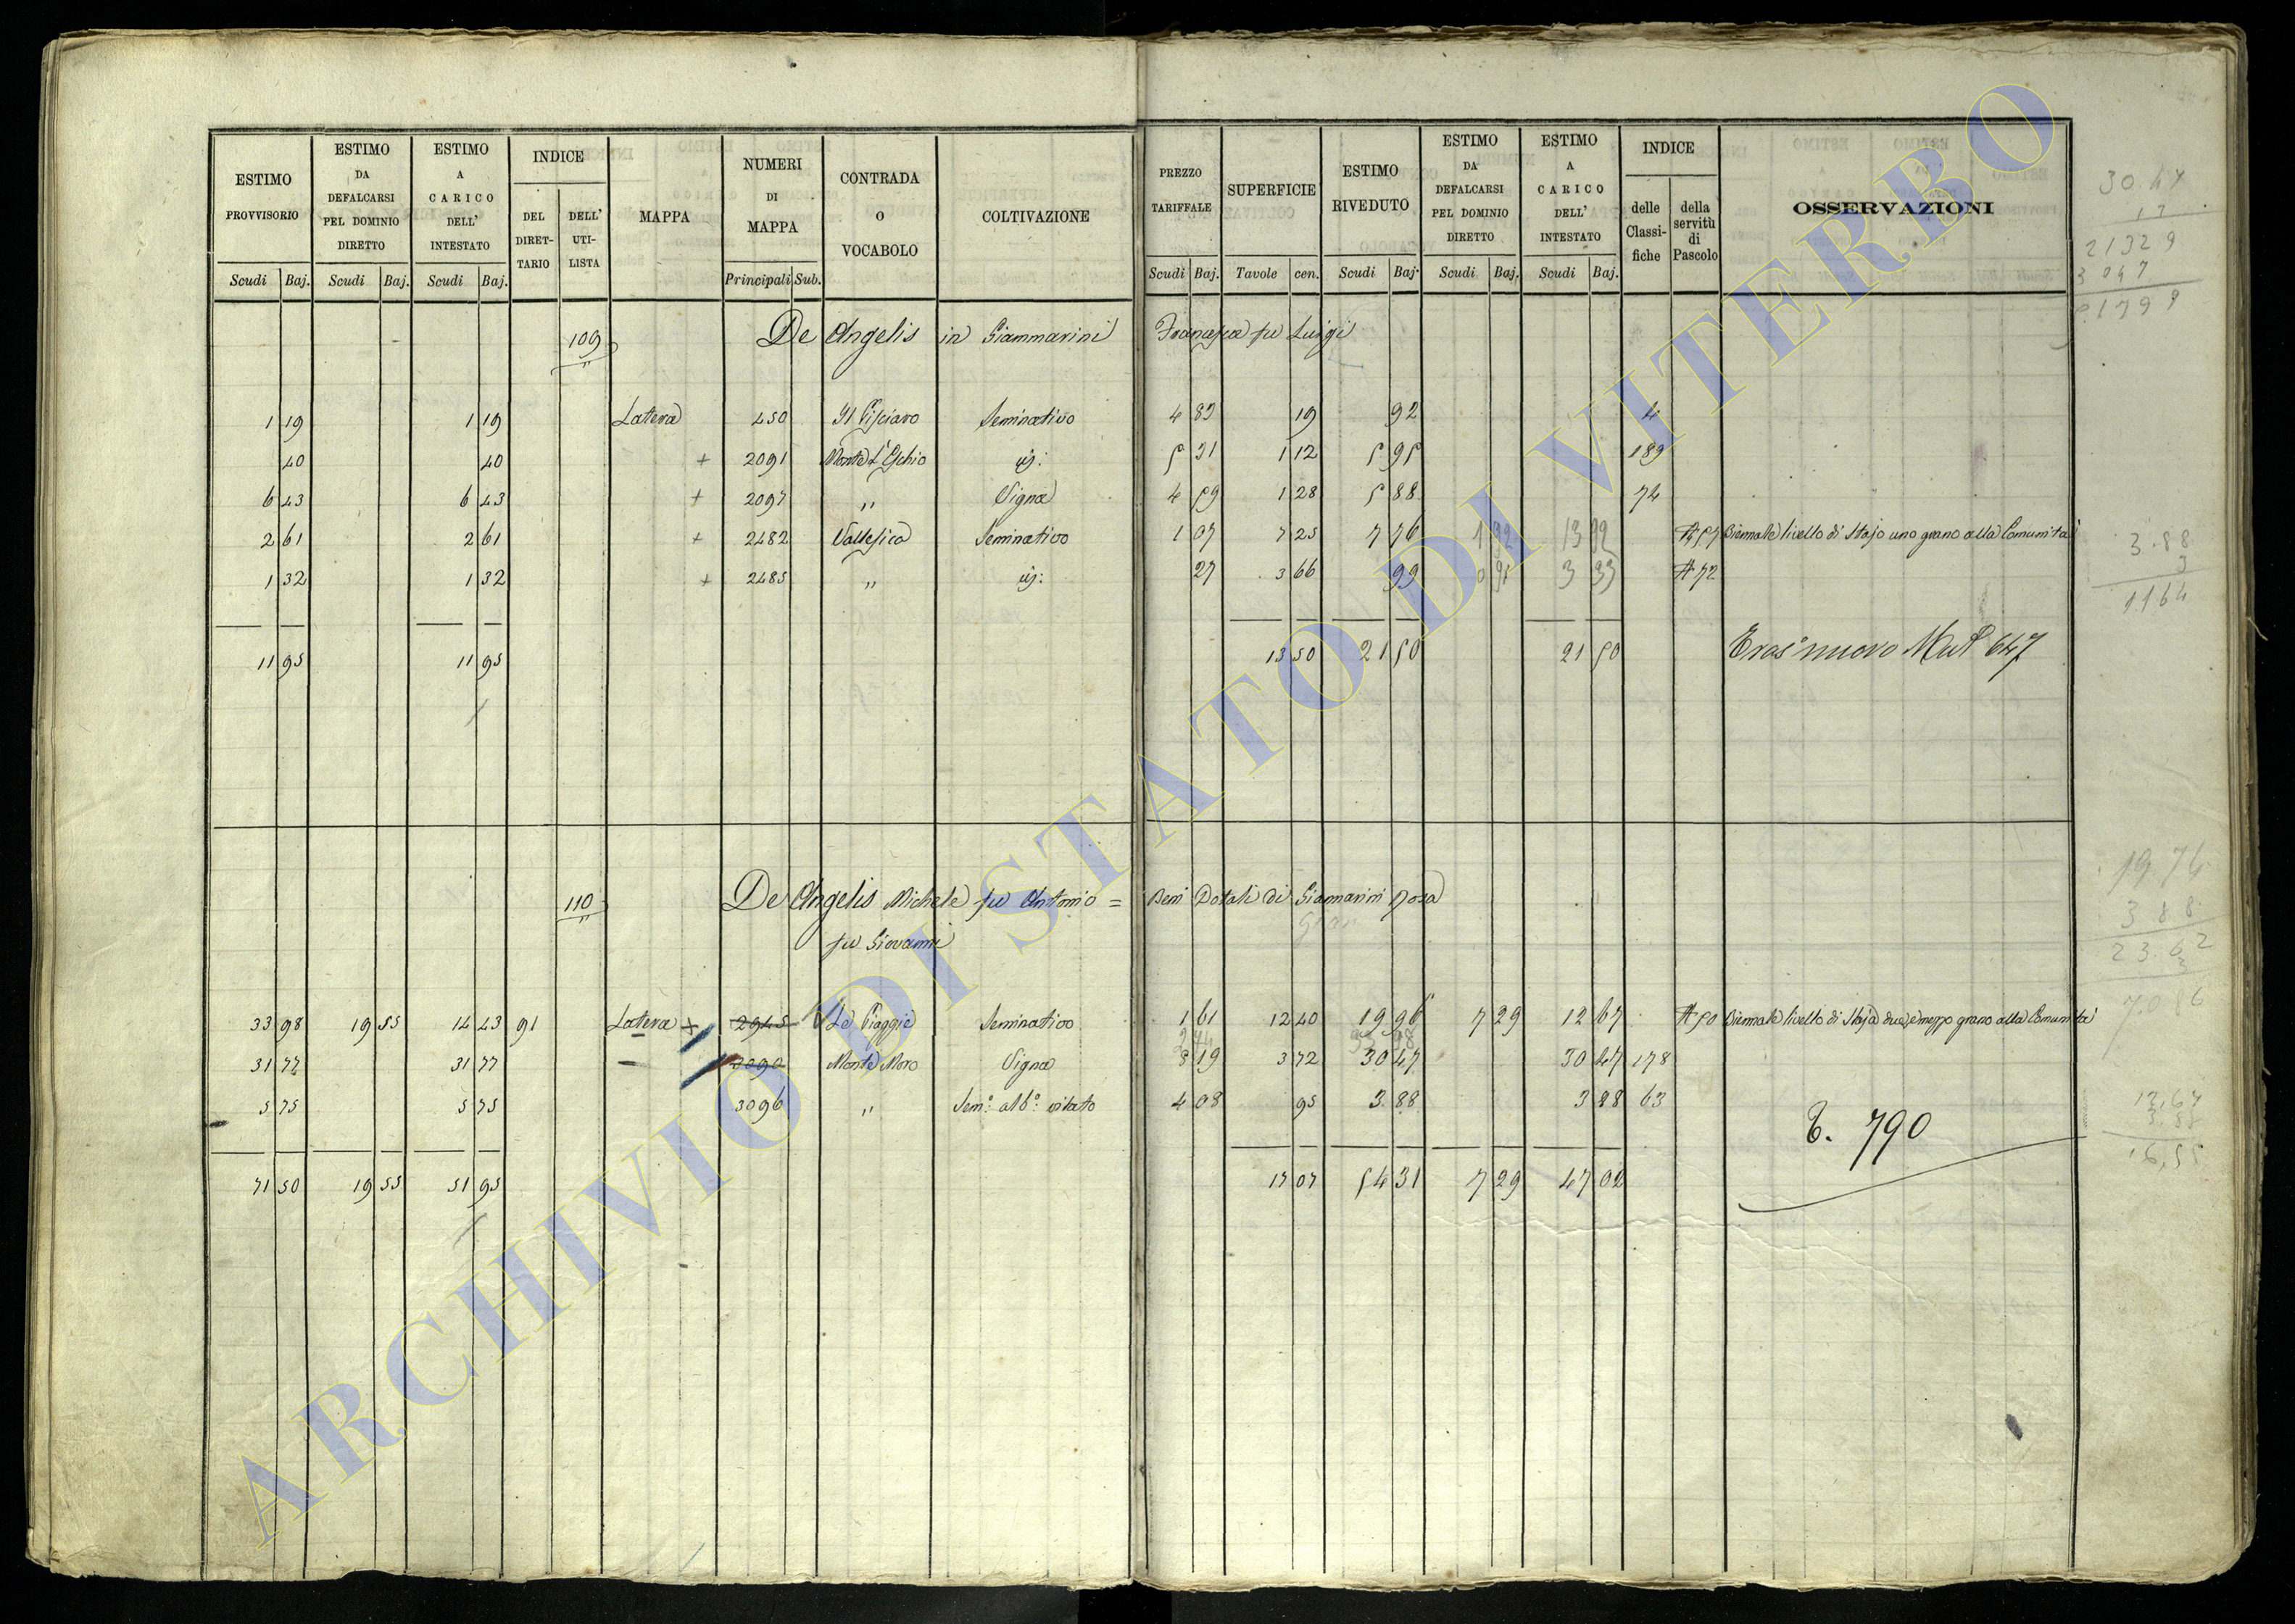 ESTIMO PROVVISORIO | ESTIMO DA DEFALCARSI PEL DOMINIO DIRETTO | ESTIMO A CARICO DELL' INTESTATO | INDICE | MAPPA | NUMERI DI MAPPA | CONTRADA O VOCABOLO | COLTIVAZIONE | PREZZO TARIFFALE | SUPERFICIE | ESTIMO RIVEDUTO | ESTIMO DA DEFALCARSI PEL DOMINIO DIRETTO | ESTIMO A CARICO DELL' INTESTATO | INDICE | OSSERVAZIONI
DEL DIRET-TARIO | DELL' UTI-LISTA | delle Classi-fiche | della servitù di Pascolo
Scudi | Baj. | Scudi | Baj. | Scudi | Baj. | Principali | Sub. | Scudi | Baj. | Tavole | cen. | Scudi | Baj. | Scudi | Baj. | Scudi | Baj.
109 De Angelis in Giammarini Francesca fu Luigi
1 19 | 1 19 | Latera | 450 | Il Pisciaro | Seminativo | 4 83 | 19 | 92 | 4
40 | 40 | + | 2091 | Monte L'Eschio | id: | 5 31 | 1 12 | 5 95 | 189
6 43 | 6 43 | + | 2097 | " | Vigna | 4 59 | 1 28 | 5 88 | 74
2 61 | 2 61 | + | 2482 | Vallesica | Seminativo | 1 07 | 7 25 | 7 76 | 1 32 | 13 92 | A 57 | Biennale livello di Stajo uno grano alla Comunità
1 32 | 1 32 | + | 2485 | " | id: | 27 | 3 66 | 99 | 3 33 | A 72
11 95 | 11 95 | 13 50 | 21 50 | 21 50 | nuovo 647
110 De Angelis Michele fu Antonio = Beni Dotali di Giammarini Rosa
fu Giovanni
33 98 | 19 55 | 14 43 | 91 | Latera + | 2945 | Le Piaggie | Seminativo | 1 61 | 12 40 | 19 96 | 7 29 | 12 67 | A 50 | Biennale livello di Staja due, e mezzo grano alla Comunità
31 77 | 31 77 | 3090 | Monte Moro | Vigna | 8 19 | 3 72 | 30 47 | 30 47 | 178
5 75 | 5 75 | 3096 | " | Sem:º alb:º vitato | 4 08 | 95 | 3 88 | 3 88 | 63
T. 790
71 50 | 19 55 | 51 95 | 17 07 | 54 31 | 7 29 | 47 02
30.47
21329
3047
3.88
3
1164
19.74
3 88
23.62
3
70.86
12,67
3.88
16,55
ARCHIVIO DI STATO DI VITERBO